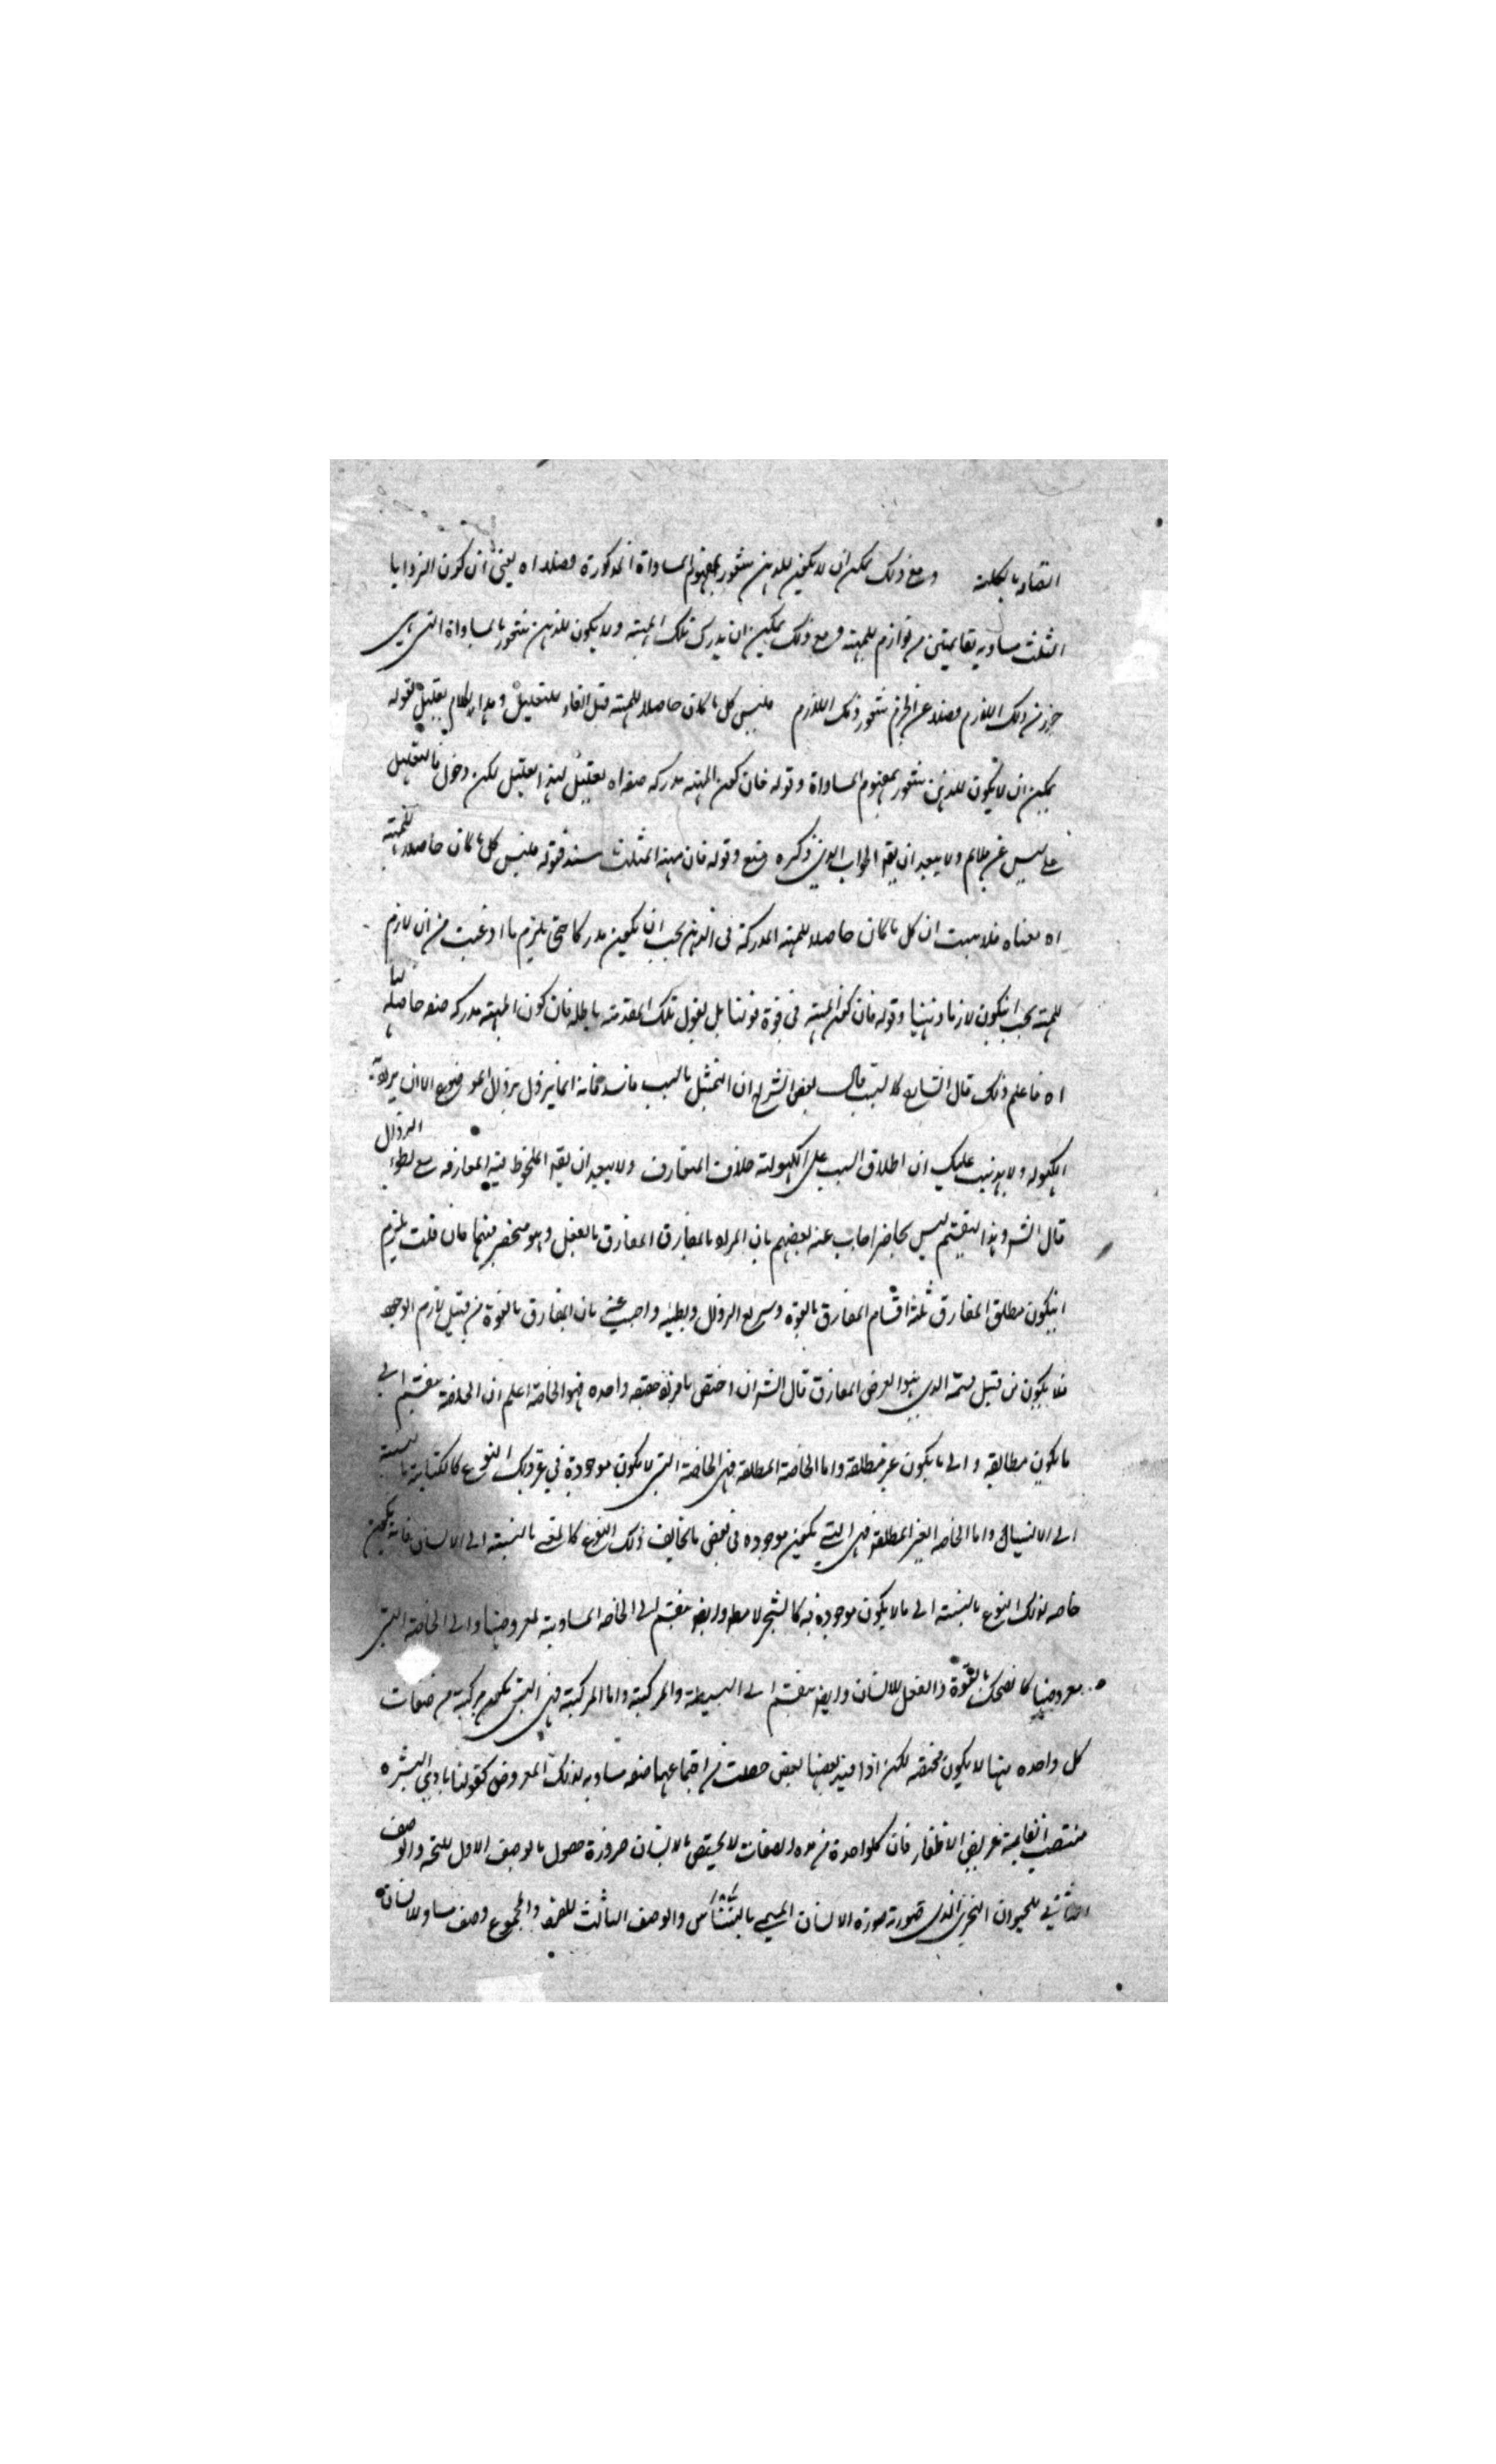 اتصافه بالكلية ومع ذلك يمكن ان لا يكون للذهن شعور بمفهوم المساواة المذكورة فضلا اه يعني ان كون الزوايا
الثلث مساوية لقائمتين من لوازم المهية ومع ذلك يمكن ان يدرك تلك المهية ولا يكون للذهن شعور بالمساواة التي هي
جزء من ذلك اللازم فضلا عن الجزم بثبوت ذلك اللازم فليس كل ما كان حاصلا للمهية قيل الفاء للتعليل وهذا الكلام تعليل لقوله
يمكن ان لا يكون للذهن شعور بمفهوم المساواة وقوله فان كون المهية مدركة صفة اه تعليل لهذا التعليل لكن دخول فاء التعليل
على ليس غير ملايم ولا يبعد ان يقه الجواب الذي ذكره منع وقوله فان مهية المثلث سند فقوله فليس كل ما كان حاصلا للمهية
اه معناه فلا يثبت ان كل ما كان حاصلا للمهية المدركة في الذهن يجب ان يكون مدركا حتى يلزم ما ادعيت من ان لازم
المهية يجب ان يكون لازما ذهنيا وقوله فان كون المهية في قوة قولنا بل نقول تلك المقدمة باطلة فان كون المهية مدركة صفة حاصلة لها
اه فاعلم ذلك قال الشارح كالشيب قال بعض الشراح ان التمثيل بالشيب فاسد فانه انما يزول بزوال الموضوع الا ان يراد به
الكهولة ولا يذهب عليك ان اطلاق الشيب على الكهولة خلاف المتعارف ولا يبعد ان يقه الملحوظ فيه المفارقة مع بطوء الزوال
قال الشه وهذا التقسيم ليس بحاصر اجاب عنه بعضهم بان المراد بالمفارق المفارق بالفعل وهو منحصر فيهما فان قلت يلزم
ان يكون مطلق المفارق ثلثة اقسام المفارق بالقوة وسريع الزوال وبطيئه واجيب عنه بان المفارق بالقوة من قبيل لازم الوجود
فلا يكون من قبيل قسمة الذي هو العرض المفارق قال الشه ان اختص بافراد حقيقة واحدة فهو الخاصة اعلم ان الخاصة ينقسم الى
ما يكون مطلقة والى ما يكون غير مطلقة واما الخاصة المطلقة فهي الخاصة التي لا يكون موجودة في غير ذلك النوع كالكتابة بالنسبة
الى الانسان واما الخاصة الغير المطلقة فهي التي يكون موجودة في بعض ما يخالف ذلك النوع كالمشي بالنسبة الى الانسان فانه يكون
خاصة لذلك النوع بالنسبة الى ما لا يكون موجودة فيه كالشجر لا مطه وايضه ينقسم الى الخاصة المساوية لمعروضها والى الخاصة التي
معروضها كالضحك بالقوة والفعل للانسان وايضه ينقسم الى البسيطة والمركبة واما المركبة فهي التي يكون مركبة من صفات
كل واحدة منها لا يكون مختصة لكن اذا قيد بعضها ببعض حصلت من اجتماعها صفة مساوية لذلك المعروض كقولنا بادي البشرة
منتصب القامة عريض الاظفار فان كلواحدة من هذه الصفات لا يختص بالانسان ضرورة حصول الوصف الاول للحية والوصف
الثاني للحيوان البحري الذي صورته صورة الانسان المسمى بالنسناس والوصف الثالث للقرد والمجموع وصف مساو للانسان